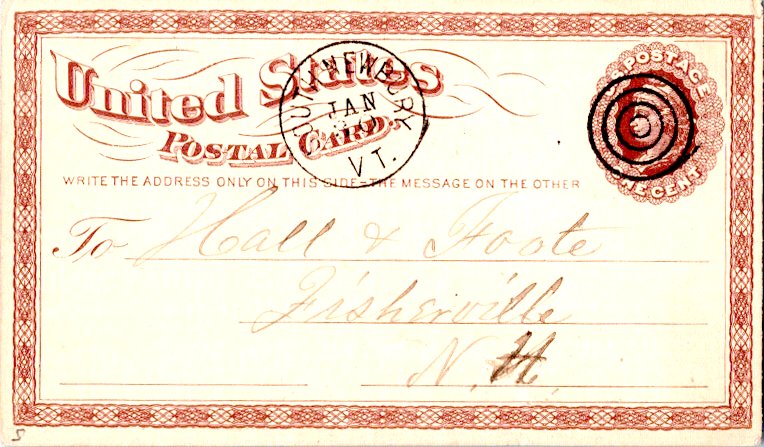 United States
POSTAL CARD.
SOUTH NEWBURY
JAN
VT.
POSTAGE
ONE CENT
WRITE THE ADDRESS ONLY ON THIS SIDE–THE MESSAGE ON THE OTHER
To Hall & Foote
Fisherville
N. H.
5